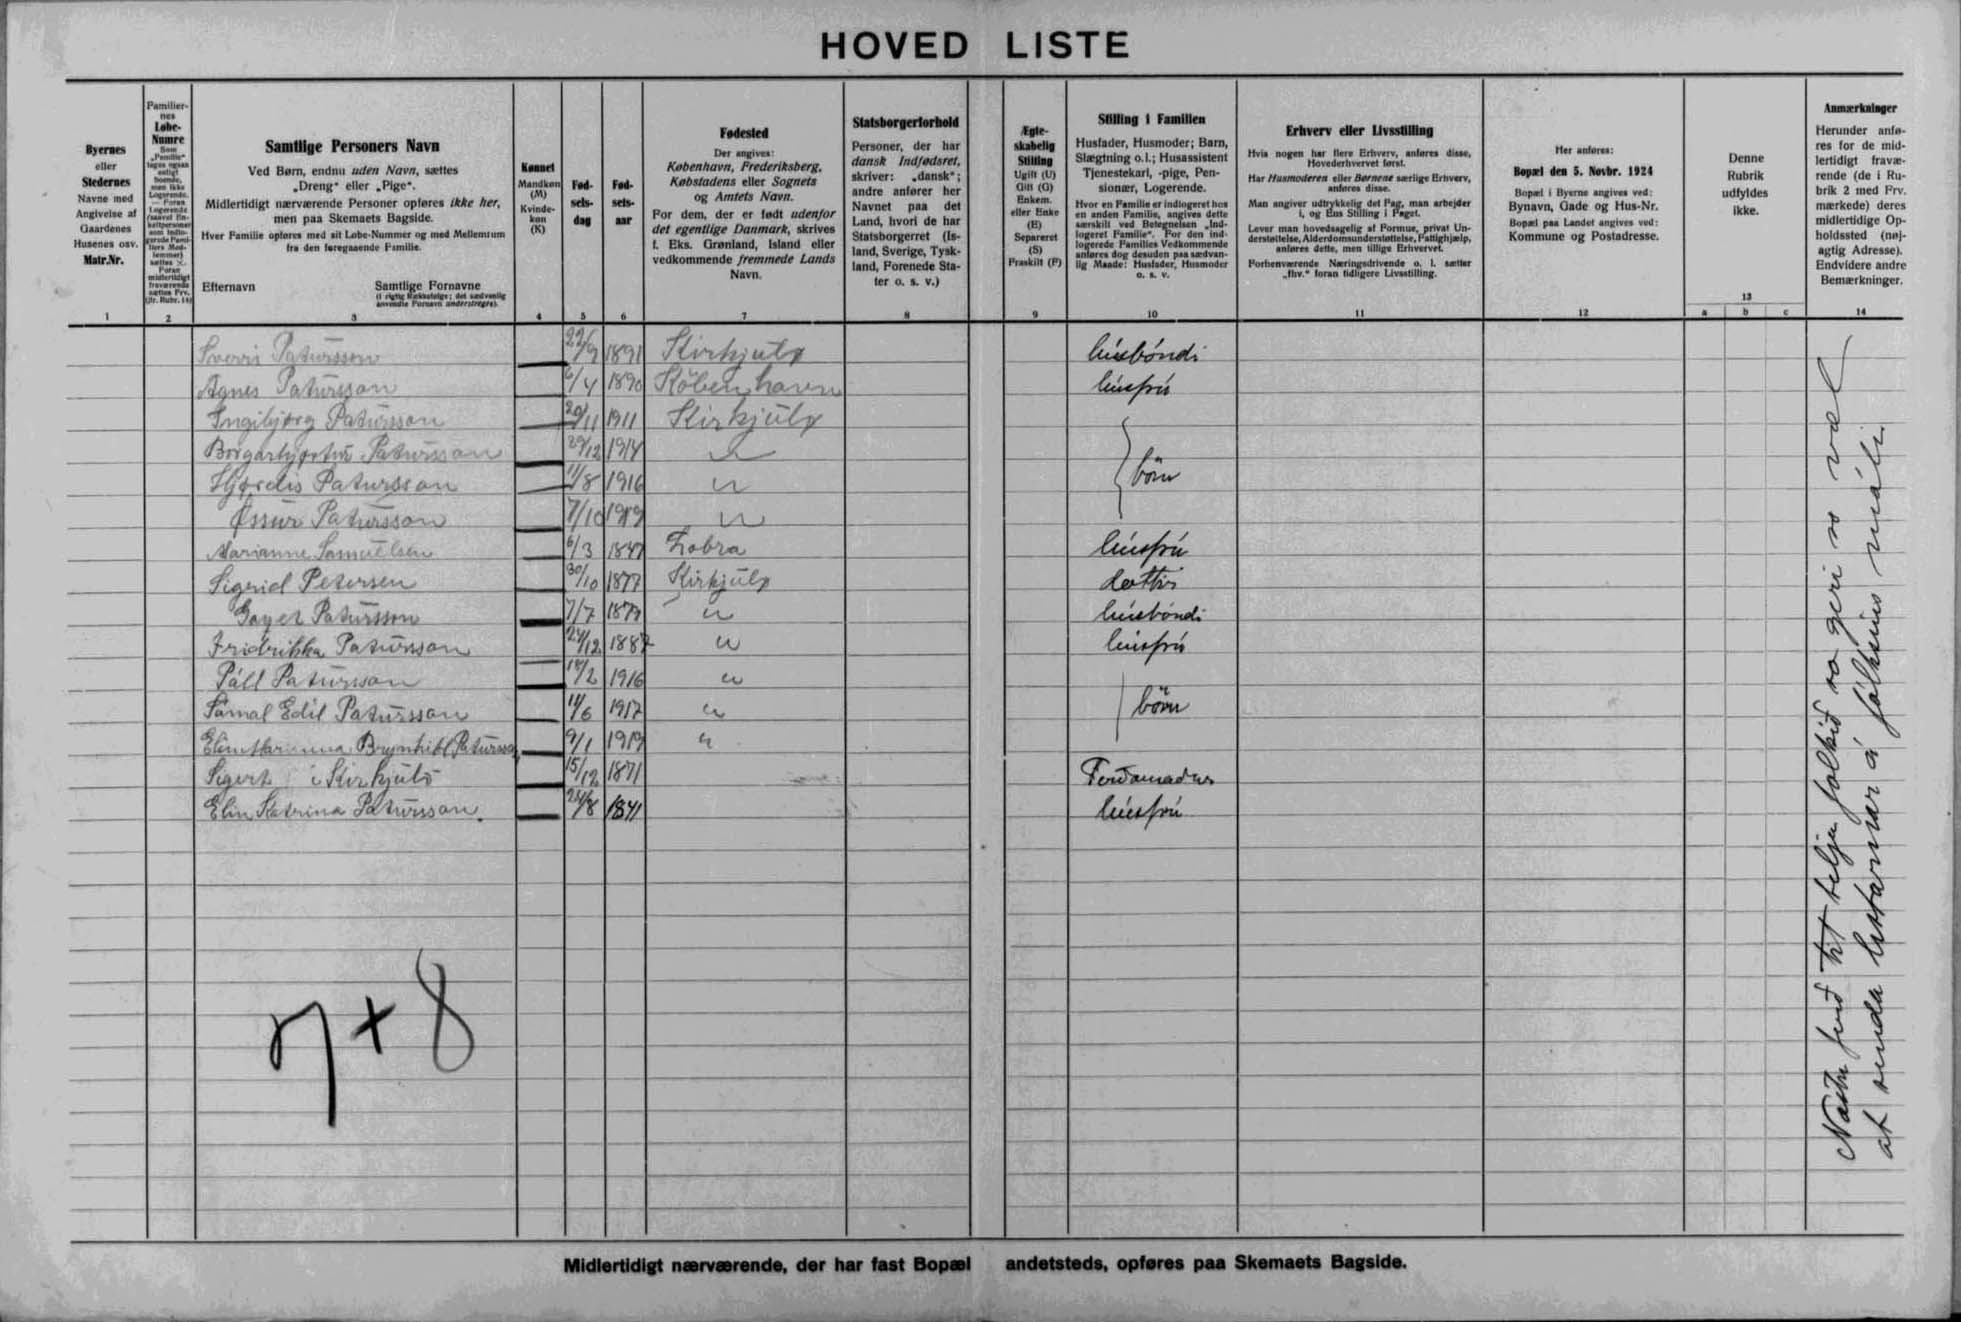 HOVED LISTE
Byernes
eller
Stedernes
Navne med
Angivelse af
Gaardenes
Husenes osv.
Matr.Nr.
1
Familier-
nes
Løbe-
Numre
Som
„Familie“
tages ogsaa
enligt
boende,
men ikke
Logerende.
— Foran
Logerende
(saavel En-
keltpersoner
som indlo-
gerede Fami-
liers Med-
lemmer)
sættes ×.
Foran
midlertidigt
fraværende
sættes Frv.
(jfr. Rubr. 14)
2
Samtlige Personers Navn
Ved Børn, endnu uden Navn, sættes
„Dreng“ eller „Pige“.
Midlertidigt nærværende Personer opføres ikke her,
men paa Skemaets Bagside.
Hver Familie opføres med sit Løbe-Nummer og med Mellemrum
fra den foregaaende Familie.
Efternavn Samtlige Fornavne
(i rigtig Rækkefølge; det sædvanlig
anvendte Fornavn understreges).
3
Kønnet
Mandkøn
(M)
Kvinde-
køn
(K)
4
Fød-
sels-
dag
5
Fød-
sels-
aar
6
Fødested
Der angives:
København, Frederiksberg,
Købstadens eller Sognets
og Amtets Navn.
For dem, der er født udenfor
det egentlige Danmark, skrives
f. Eks. Grønland, Island eller
vedkommende fremmede Lands
Navn.
7
Statsborgerforhold
Personer, der har
dansk Indfødsret,
skriver: „dansk“;
andre anfører her
Navnet paa det
Land, hvori de har
Statsborgerret (Is-
land, Sverige, Tysk-
land, Forenede Sta-
ter o. s. v.)
8
Ægte-
skabelig
Stilling
Ugift (U)
Gift (G)
Enkem.
eller Enke
(E)
Separeret
(S)
Fraskilt (F)
9
Stilling i Familien
Husfader, Husmoder; Barn,
Slægtning o.l.; Husassistent
Tjenestekarl, -pige, Pen-
sionær, Logerende.
Hvor en Familie er indlogeret hos
en anden Familie, angives dette
særskilt ved Betegnelsen „Ind-
logeret Familie“. For den ind-
logerede Families Vedkommende
anføres dog desuden paa sædvan-
lig Maade: Husfader, Husmoder
o. s. v.
10
Erhverv eller Livsstilling
Hvis nogen har flere Erhverv, anføres disse,
Hovederhvervet først.
Har Husmoderen eller Børnene særlige Erhverv,
anføres disse.
Man angiver udtrykkelig det Fag, man arbejder
i, og Ens Stilling i Faget.
Lever man hovedsagelig af Formue, privat Un-
derstøttelse, Alderdomsunderstøttelse, Fattighjælp,
anføres dette, men tillige Erhvervet.
Forhenværende Næringsdrivende o. l. sætter
„fhv.“ foran tidligere Livsstilling.
11
Her anføres:
Bopæl den 5. Novbr. 1924
Bopæl i Byerne angives ved:
Bynavn, Gade og Hus-Nr.
Bopæl paa Landet angives ved:
Kommune og Postadresse.
12
Denne
Rubrik
udfyldes
ikke.
13
a b c
Anmærkninger
Herunder anfø-
res for de mid-
lertidigt fravæ-
rende (de i Ru-
brik 2 med Frv.
mærkede) deres
midlertidige Op-
holdssted (nøj-
agtig Adresse).
Endvidere andre
Bemærkninger.
14
Sverri Patursson 22/9 1891 Kirkjubø húsbóndi
Agnes Patursson 6/4 1890 Köbenhavn húsfrú
Ingibjørg Patursson 20/11 1911 Kirkjubø
Borgarhjørtur Patursson 29/12 1914 "
Hjørdis Patursson 11/8 1916 " börn
Øssur Patursson 7/10 1919 "
Marianne Samuelsen 6/3 1847 húsfrú
Sigrid Petersen 30/10 1877 Kirkjubø dottir
Patursson 7/7 1879 " húsbóndi
Fridrikka Patursson 24/12 1887 " húsfrú
Páll Patursson 18/2 1916 "
Sámal Edil Patursson 14/6 1917 " börn
Brynhild Patursson 9/1 1919 "
Sigert í Kirkjubö 15/12 1871
Elin Katrina Patursson. 24/8 1841 húsfrú
7 + 8
folkið so geri so væl
at senda listarnar á fólksins máli
Midlertidigt nærværende, der har fast Bopæl andetsteds, opføres paa Skemaets Bagside.